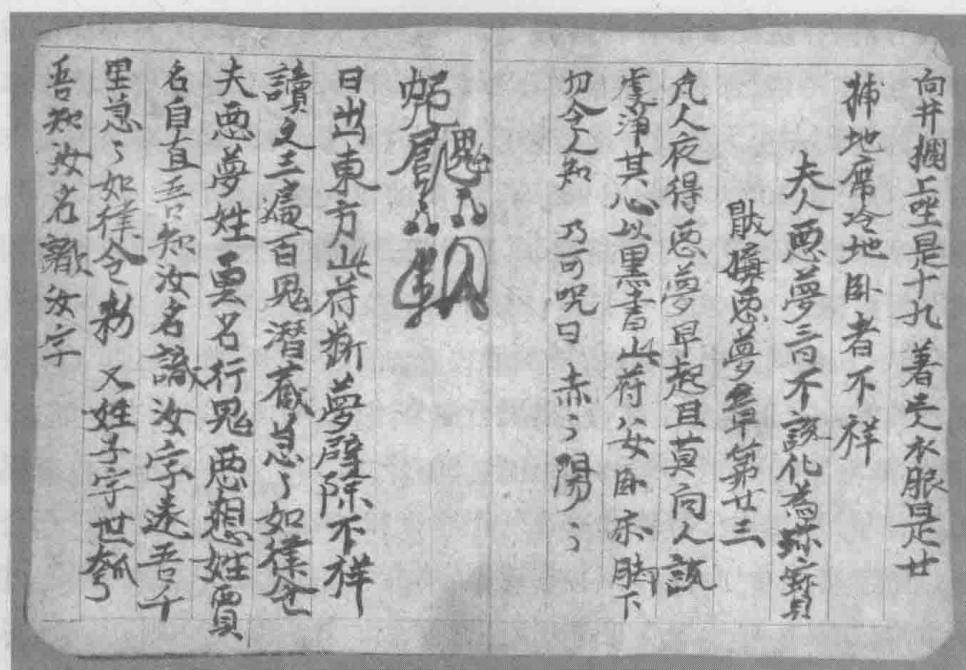 向井擱上唑是十九著⿱亡火衣服是廿
捕地席冷地卧者不祥
夫人惡夢三百不說化為珎寶
猒攘惡夢章苐廿三
凡人夜得惡夢早起且莫向人說
虔淨其心以黑書此苻安卧床脚下
勿令人知 乃可呪曰 赤〻陽〻
日出東方此苻斷夢辟除不祥
讀之三遍百鬼潜藏急〻如律令
夫惡夢姓雲名行鬼惡想姓賈
名自直吾知汝名識汝字遠吾千
里急〻如律令勑 又姓子字世瓠
吾知汝名識汝字